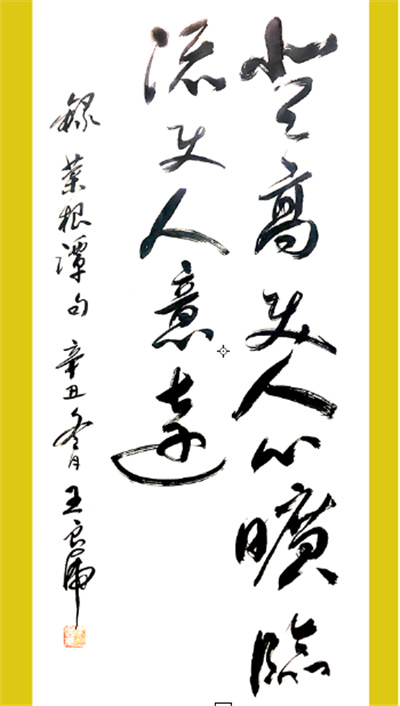 登高使人心曠臨
流使人意遠
錄菜根譚句辛丑冬月王良虎